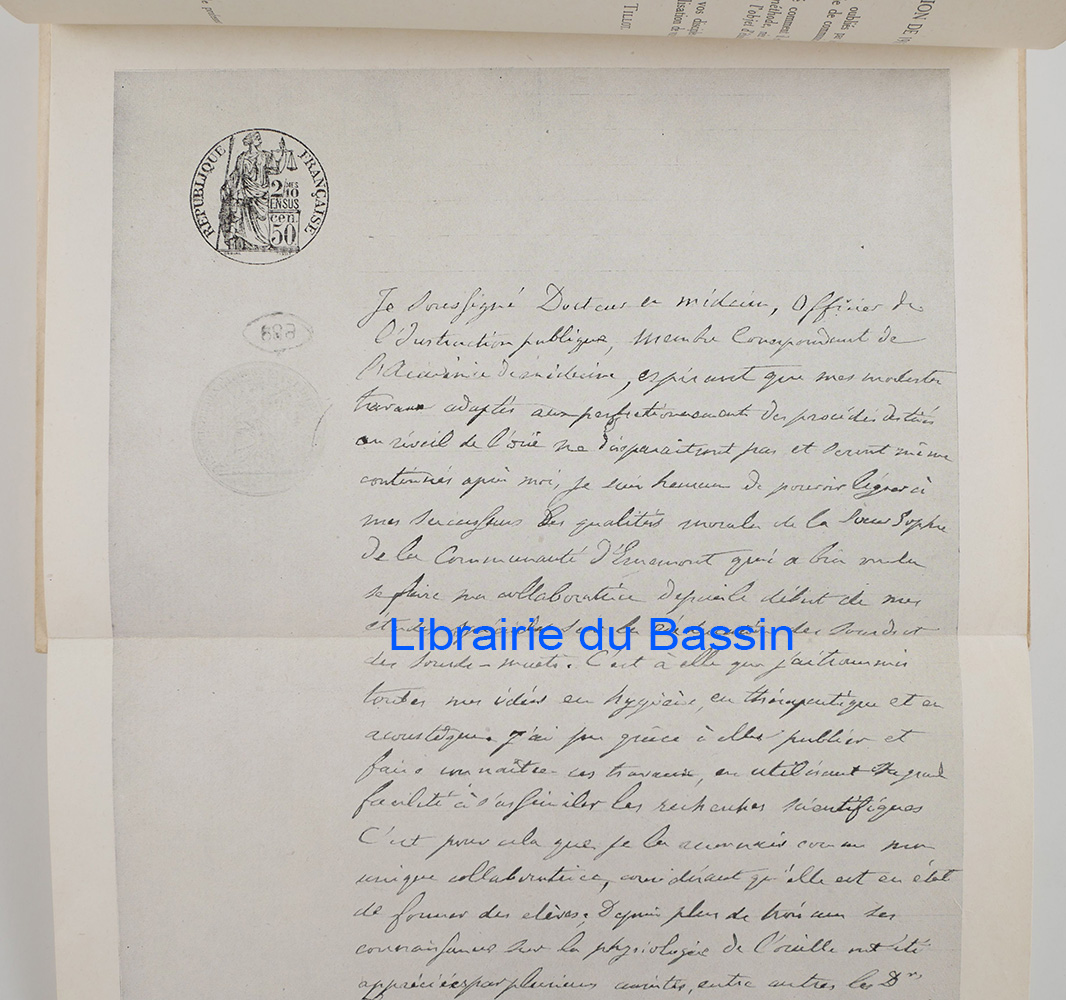 ION DE
oubliés
e de commu
comme
méthode
l'objet d'u
vos discip
lisation de
TILLOT.
RÉPUBLIQUE FRANÇAISE
2 MES
10
EN SUS
cen.
50
638
Je soussigné Docteur en médecine, Officier de
l'Instruction publique, Membre Correspondant de
l'Académie de médecine, espérant que mes modestes
travaux adaptés aux perfectionnements des procédés destinés
au réveil de l'ouïe ne disparaîtront pas et seront même
continués après moi, je suis heureux de pouvoir léguer à
mes successeurs les qualités morales de la Sœur Sophie
de la Communauté d'Ernemont qui a bien voulu
se faire ma collaboratrice depuis le début de mes
des sourds et
Librairie du Bassin
des sourds-muets. C'est à elle que j'ai transmis
toutes mes idées en hygiène, en thérapeutique et en
acoustique. J'ai pu grâce à elle publier et
faire connaître ces travaux, en utilisant sa grande
facilité à s'assimiler les recherches scientifiques
C'est pour cela que je la reconnais comme mon
unique collaboratrice, considérant qu'elle est en état
de former des élèves; Depuis plus de trois ans ses
connaissances sur la physiologie de l'oreille ont été
appréciées par plusieurs auristes, entre autres les Drs